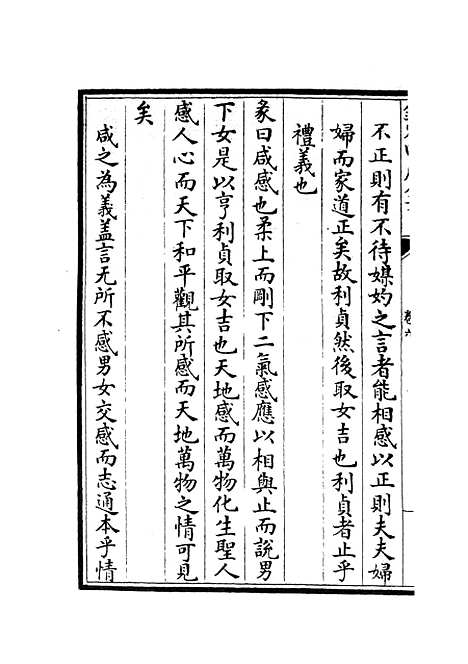 不正則有不待媒妁之言者能相感以正則夫夫婦
婦而家道正矣故利貞然後取女吉也利貞者止乎
禮義也
彖曰咸感也柔上而剛下二氣感應以相與止而說男
下女是以亨利貞取女吉也天地感而萬物化生聖人
感人心而天下和平觀其所感而天地萬物之情可見
矣
咸之為義蓋言无所不感男女交感而志通本乎情